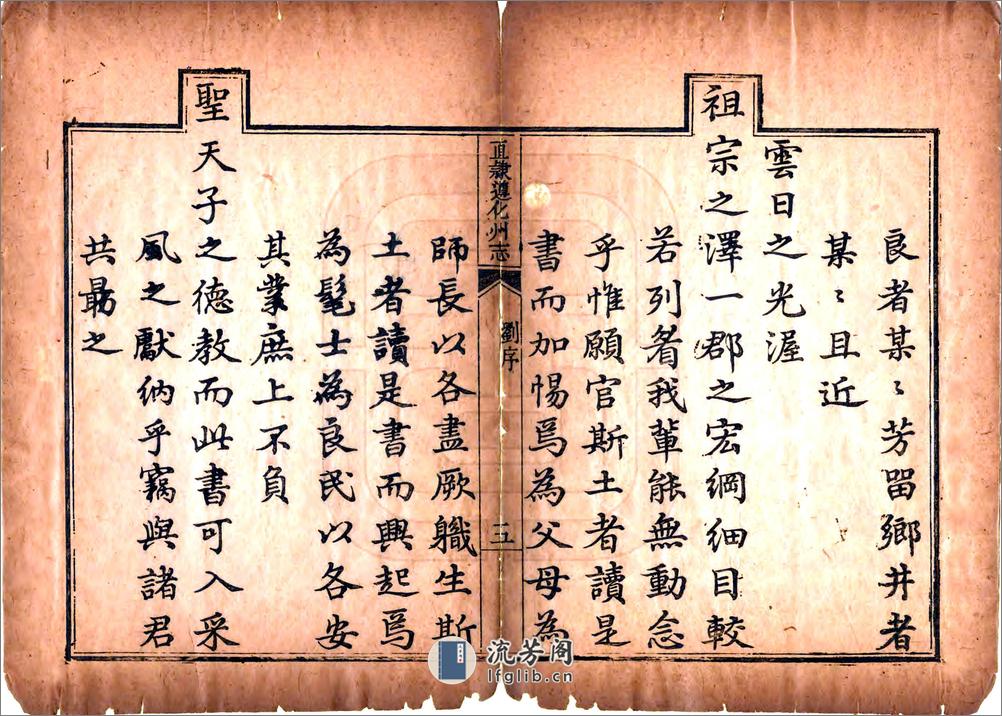 良者某〻芳留鄉井者
某〻且近
雲日之光渥
祖宗之澤一郡之宏綱細目較
若列眉我輩能無動念
乎惟願官斯土者讀是
書而加惕焉為父母為
直隷遵化州志
劉序
五
師長以各盡厥職生斯
土者讀是書而興起焉
為髦士為良民以各安
其業庶上不負
聖天子之德教而此書可入采
風之獻納乎竊與諸君
共勗之
流芳阁
lfglib.cn